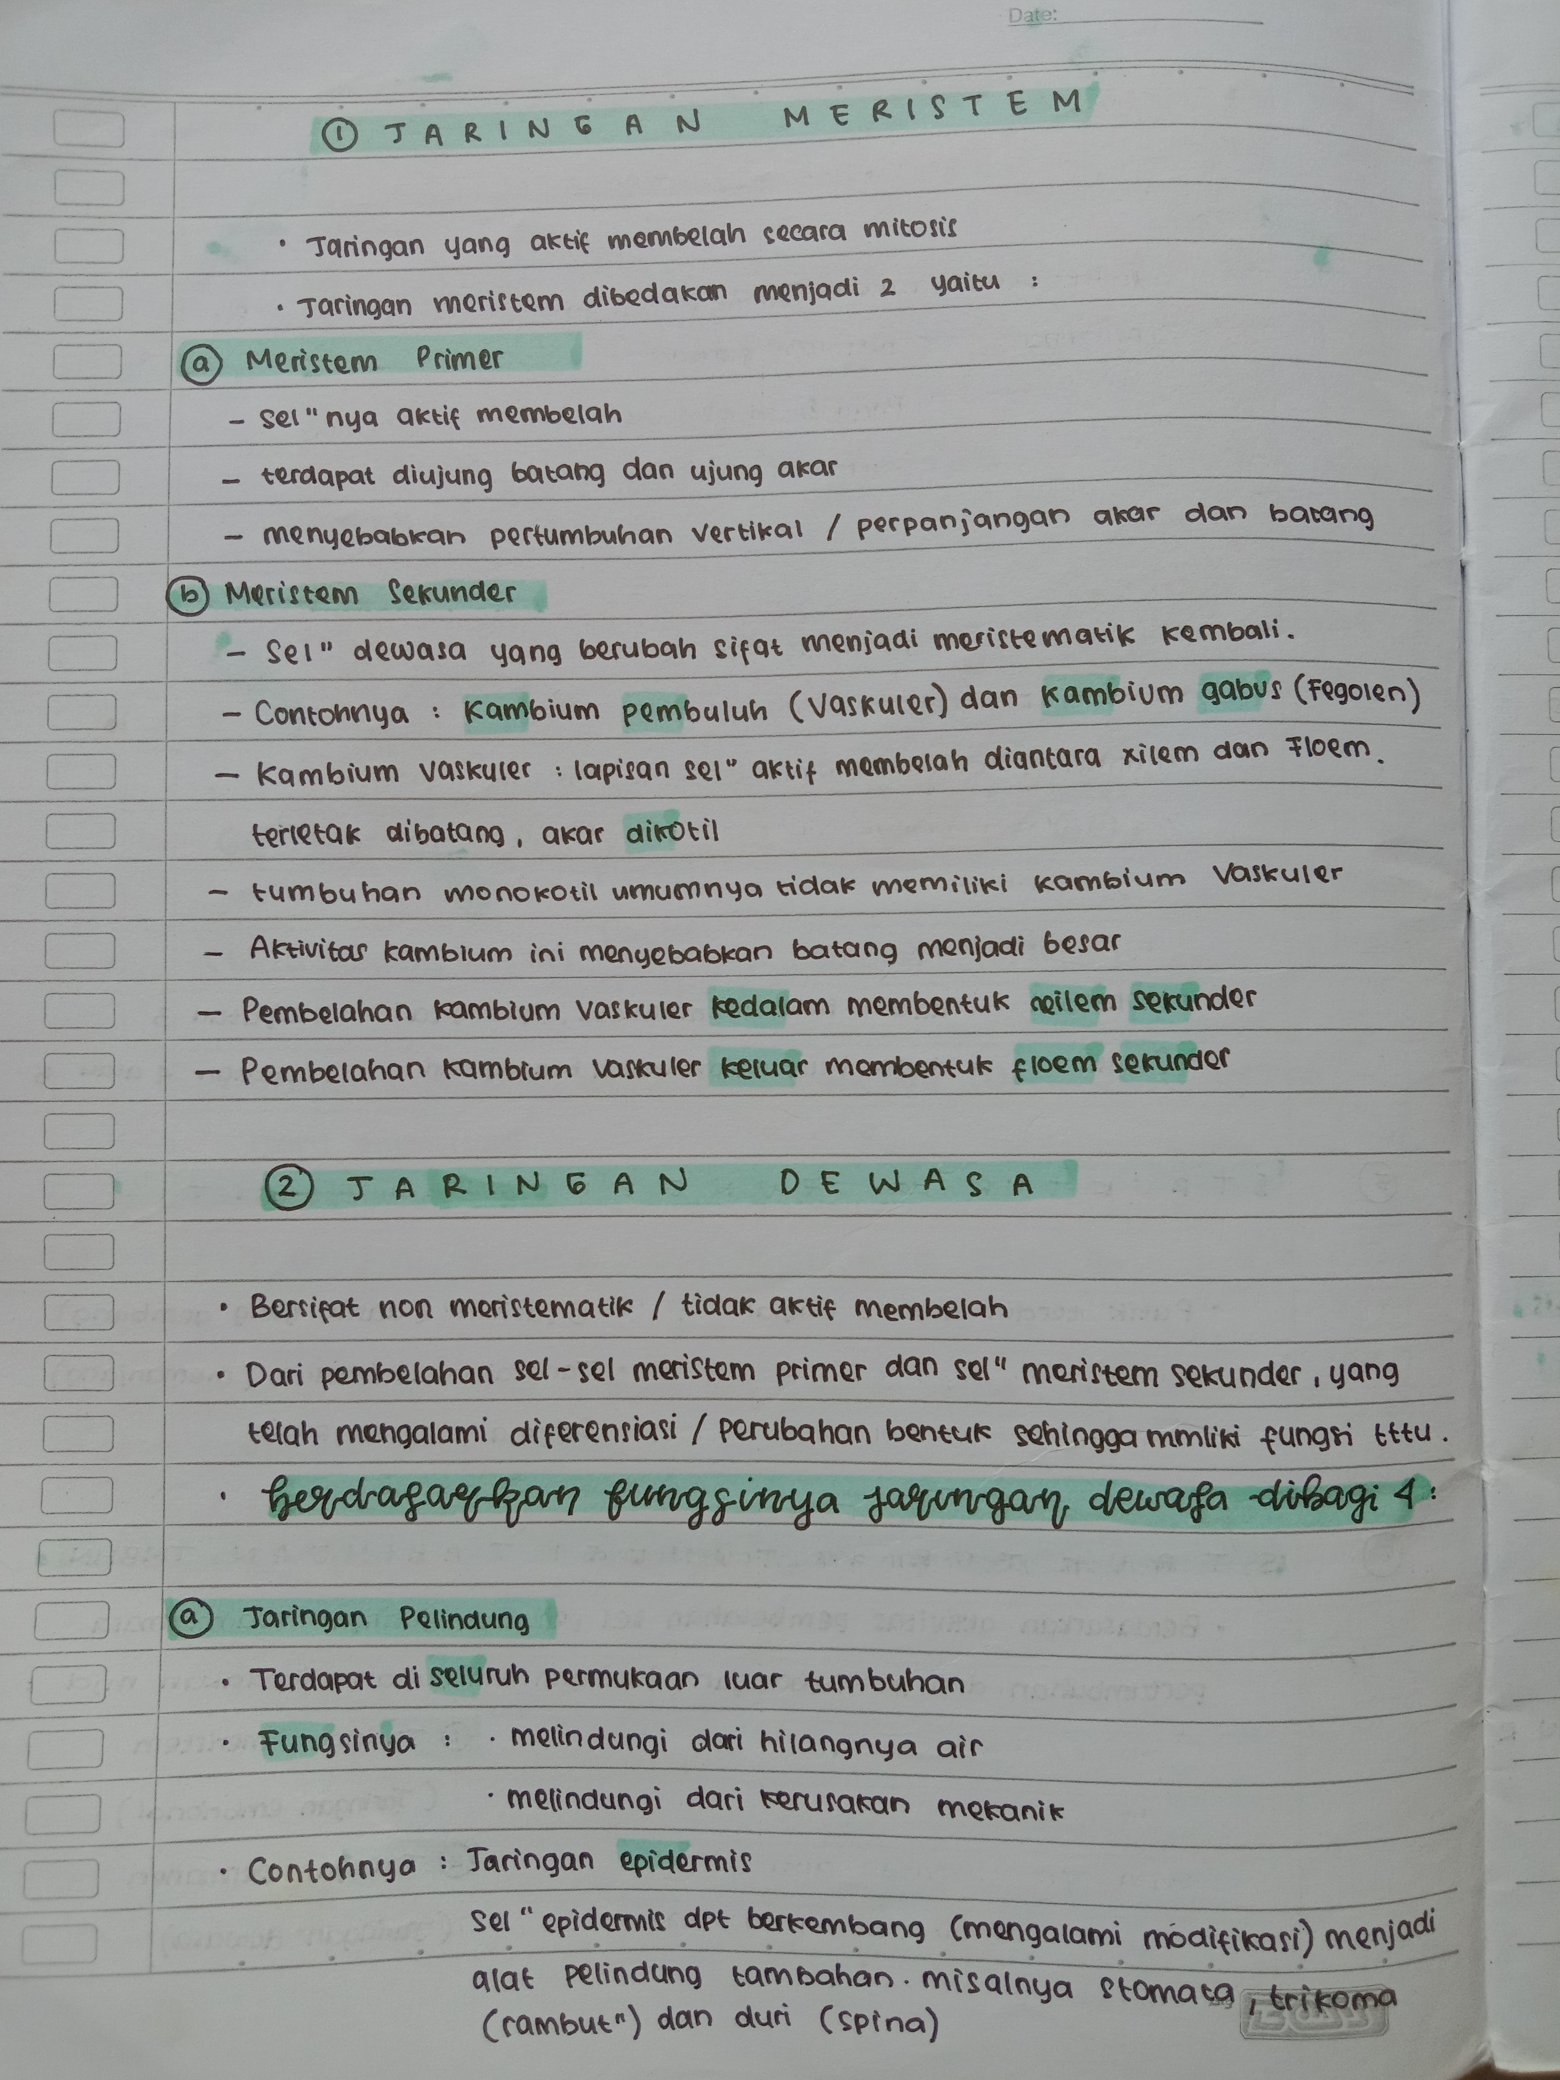 Date:
① JARINGAN MERISTEM
• Jaringan yang aktif membelah secara mitosis
• Jaringan meristem dibedakan menjadi 2 yaitu :
ⓐ Meristem Primer
- Sel"nya aktif membelah
- terdapat diujung batang dan ujung akar
- menyebabkan pertumbuhan vertikal / perpanjangan akar dan batang
ⓑ Meristem Sekunder
- Sel" dewasa yang berubah sifat menjadi meristematik kembali.
- Contohnya : Kambium pembuluh (Vaskuler) dan kambium gabus (Fegolen)
- Kambium Vaskuler : lapisan sel" aktif membelah diantara xilem dan Floem.
terletak dibatang, akar dikotil
- tumbuhan monokotil umumnya tidak memiliki kambium Vaskuler
- Aktivitas kambium ini menyebabkan batang menjadi besar
- Pembelahan kambium Vaskuler kedalam membentuk xeilem sekunder
- Pembelahan kambium Vaskuler keluar membentuk floem sekunder
② JARINGAN DEWASA
• Bersifat non meristematik / tidak aktif membelah
• Dari pembelahan sel-sel meristem primer dan sel" meristem sekunder, yang
telah mengalami diferensiasi / perubahan bentuk sehingga mmliki fungsi tttu.
• berdasarkan fungsinya jaringan dewasa dibagi 4 :
ⓐ Jaringan Pelindung
• Terdapat di seluruh permukaan luar tumbuhan
• Fungsinya : • melindungi dari hilangnya air
• melindungi dari kerusakan mekanik
• Contohnya : Jaringan epidermis
Sel" epidermis dpt berkembang (mengalami modifikasi) menjadi
alat pelindung tambahan. misalnya stomata, trikoma
(rambut") dan duri (spina)